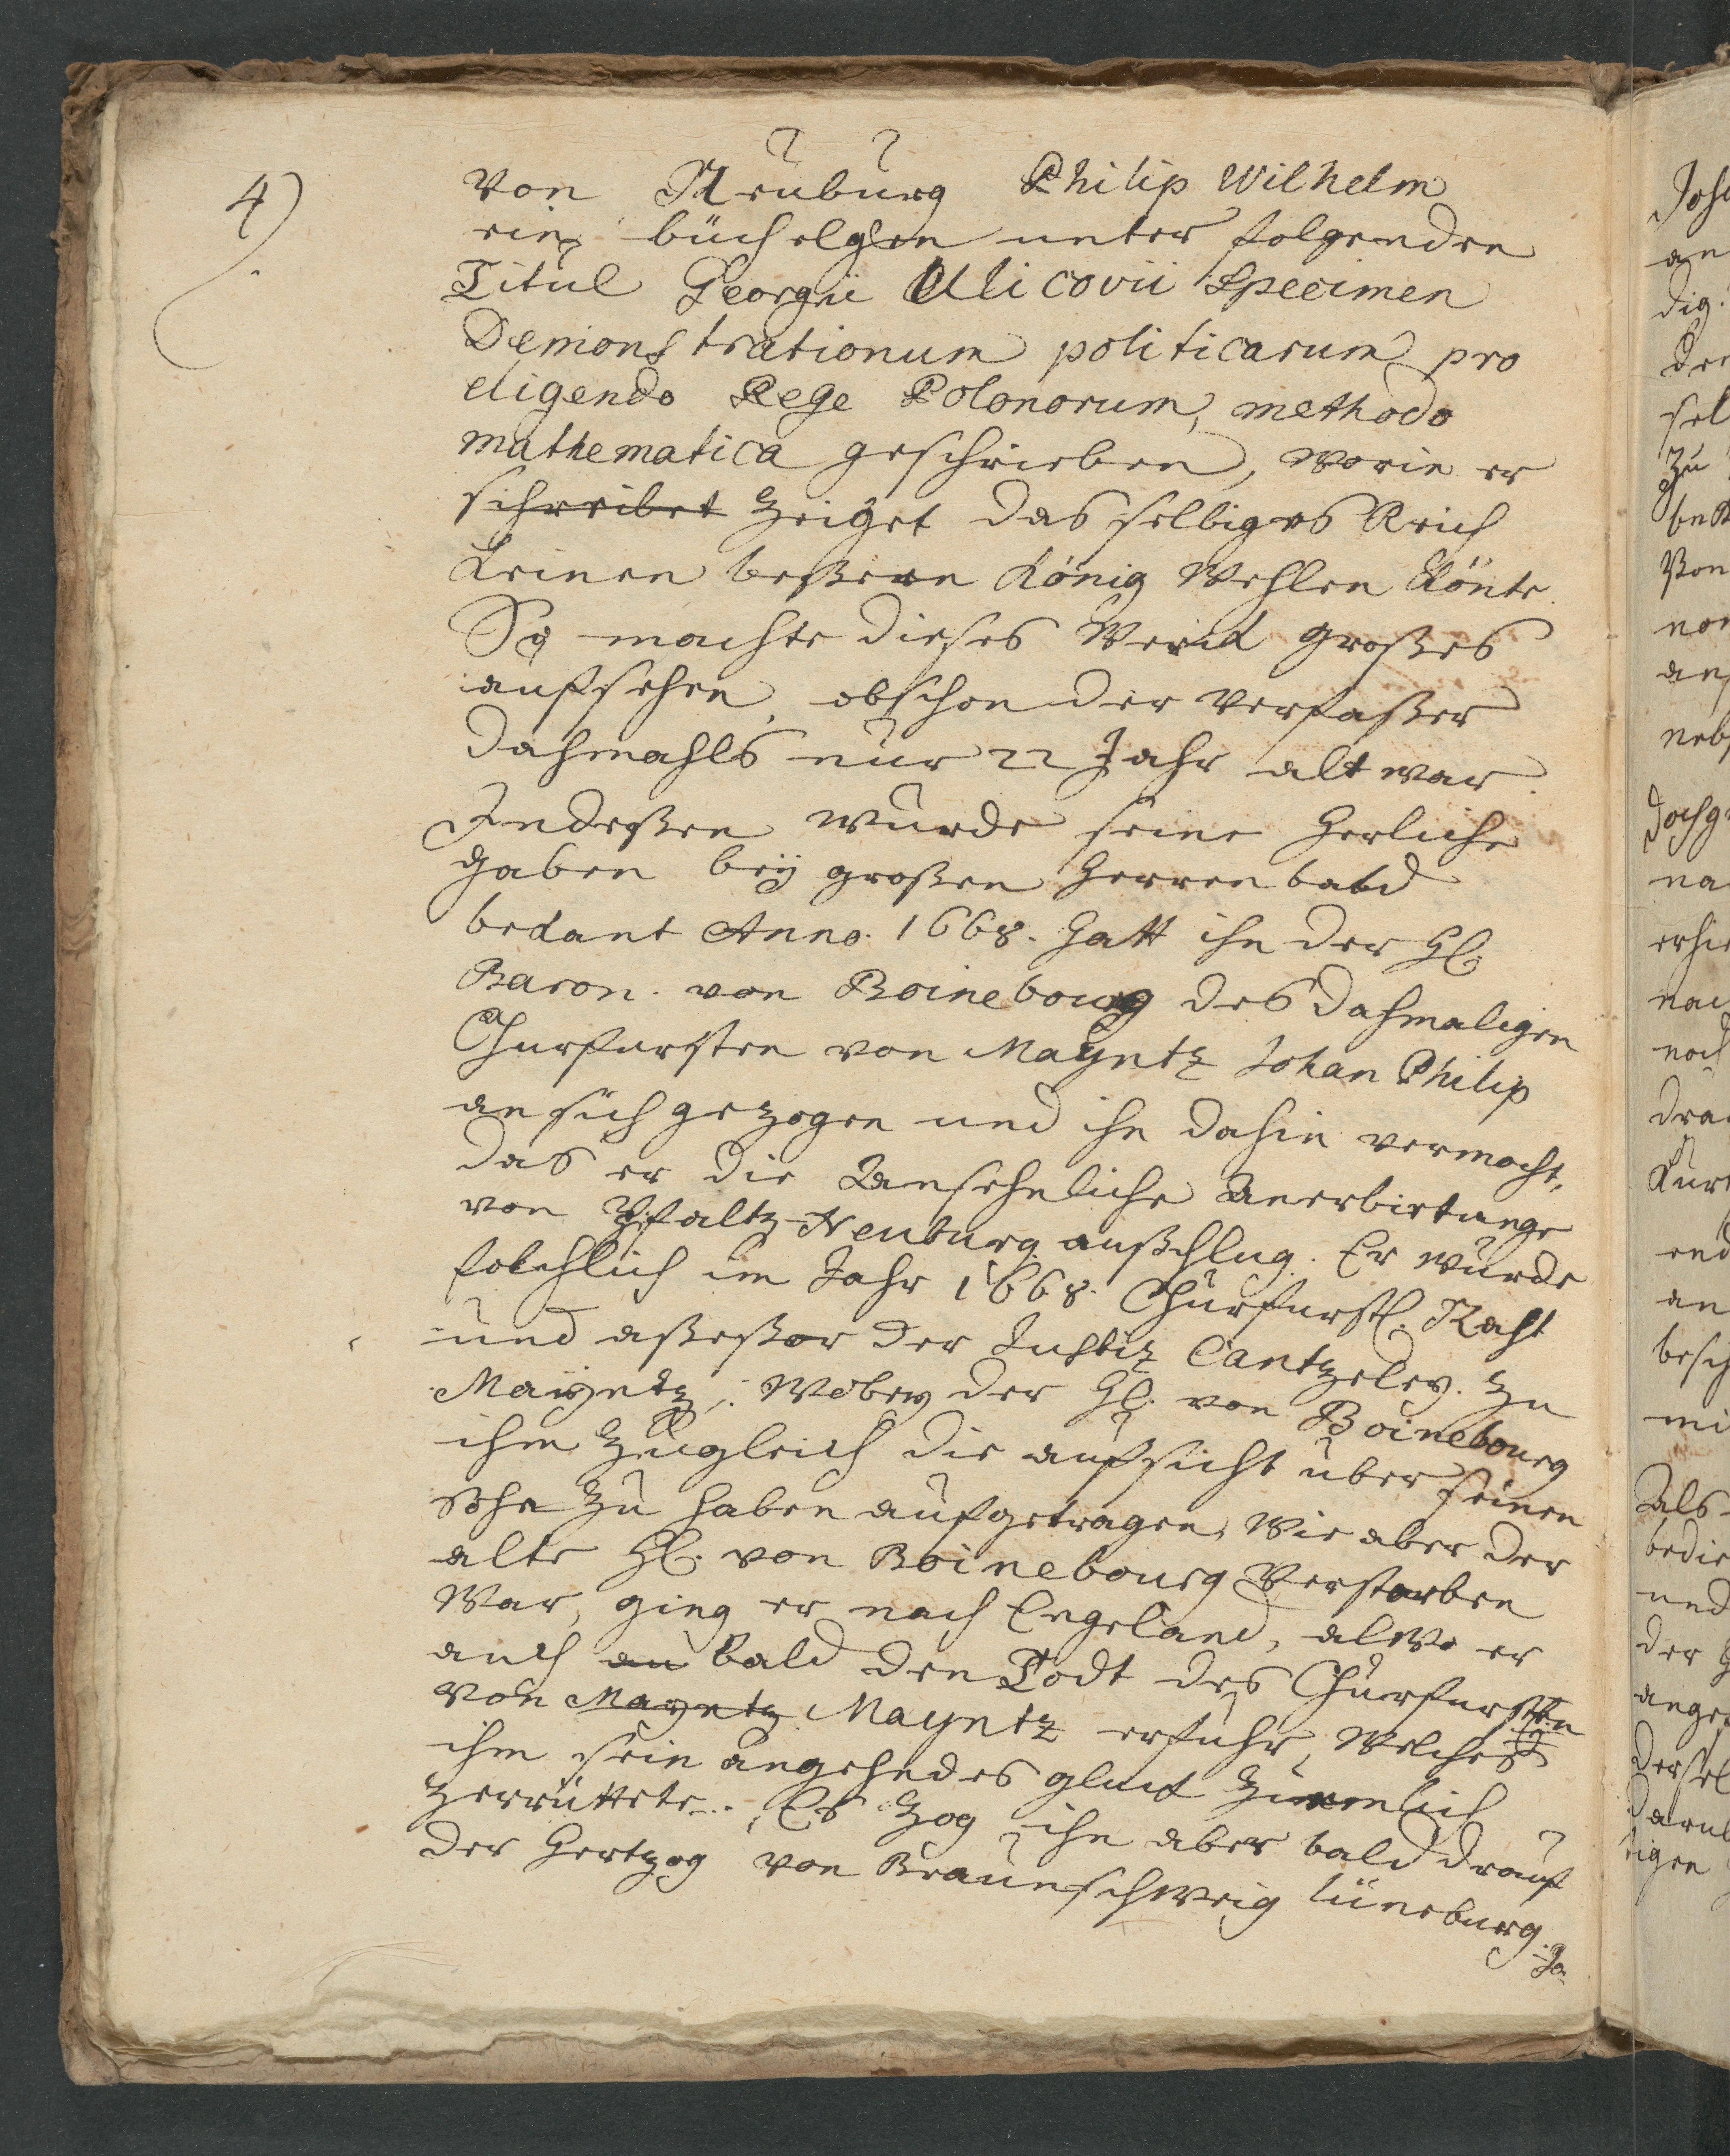 4)
Von Neuburg Philip Wilhelm
ein büchelgen unter folgenden
Titul Georgii Ulicovii Specimen
Demonstrationum politicarum pro
eligendo Rege Polonorum, methodo
mathematica geschrieben, worin er
schreibet zeiget das selbiges Reich
keinen beßeren König Wehlen könte.
So machte dieses Werck großes
aufsehen, obschon der Verfaßer
dahmahls nur 22 Jahr alt war.
Indeßen wurde seine herliche
Gaben beÿ großen Herren bald
bekant Anno. 1668. hatt ihn der H.
Baron. von Boinebourg des dahmaligen
Churfursten von Mayntz Johan Philip
an sich gezogen und ihn dahin vermocht,
das er die Ansehnliche Anerbietunge
von Pfaltz-Neuburg außschlug. Er wurde
folchlich im Jahr 1668. Churfurstl. Raht
und aßeßor der Justitz Cantzeley. zu
Mayntz, Wobey der H. von Boinebourg
ihm zugleich die aufsicht über seinen
Sohn zu haben aufgetragen, Wie aber der
alte H. von Boinebourg Verstorben
War, ging er nach Engeland, alwo er
auch au bald den Todt des Churfursten
von Mayntz Mayntz erfuhr, Welches
ihm sein angehendes gluck zimlich
zerrüttete. Es zog ihn aber bald drauf
der Hertzog von Braunschweig lüneburg.
Jo-
Joh
an
dig
der
sel
zu
Von
an
neb
doch
na
erhi
nac
noch
dra
Kur
end
an
besch
mi
Als
bedie
und
der
ange
dersel
daru
tigen